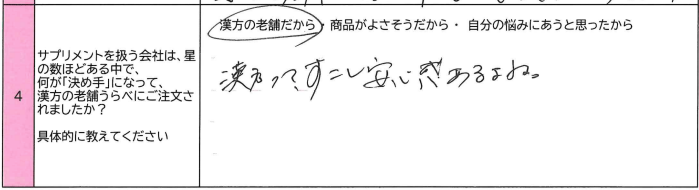 漢方の老舗だから・商品がよさそうだから・自分の悩みにあうと思ったから
4
サプリメントを扱う会社は、星
の数ほどある中で、
何が「決め手」になって、
漢方の老舗うらべにご注文さ
れましたか？
具体的に教えてください
漢方って、すこし安心感あるよね。